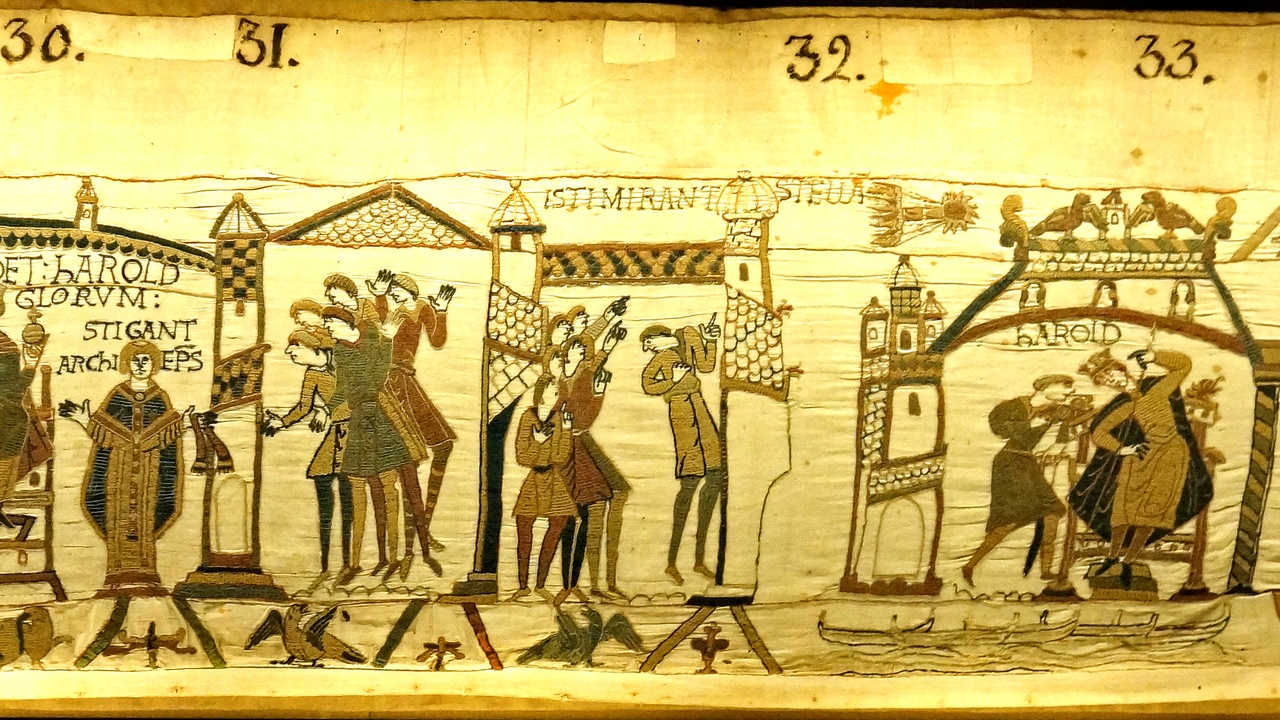 30. 31. 32. 33.
DET: hAROLD
GLORVM:
STIGANT
ARChI EPS
ISTI MIRANT STELLA
hAROLD